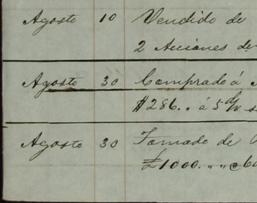 Agosto 10 Vendido de
2 Acciones de
Agosto 30 Comprado á
$286.. á 5 d/v s
Agosto 30 Tomado de
£1000. „ „ @ 60